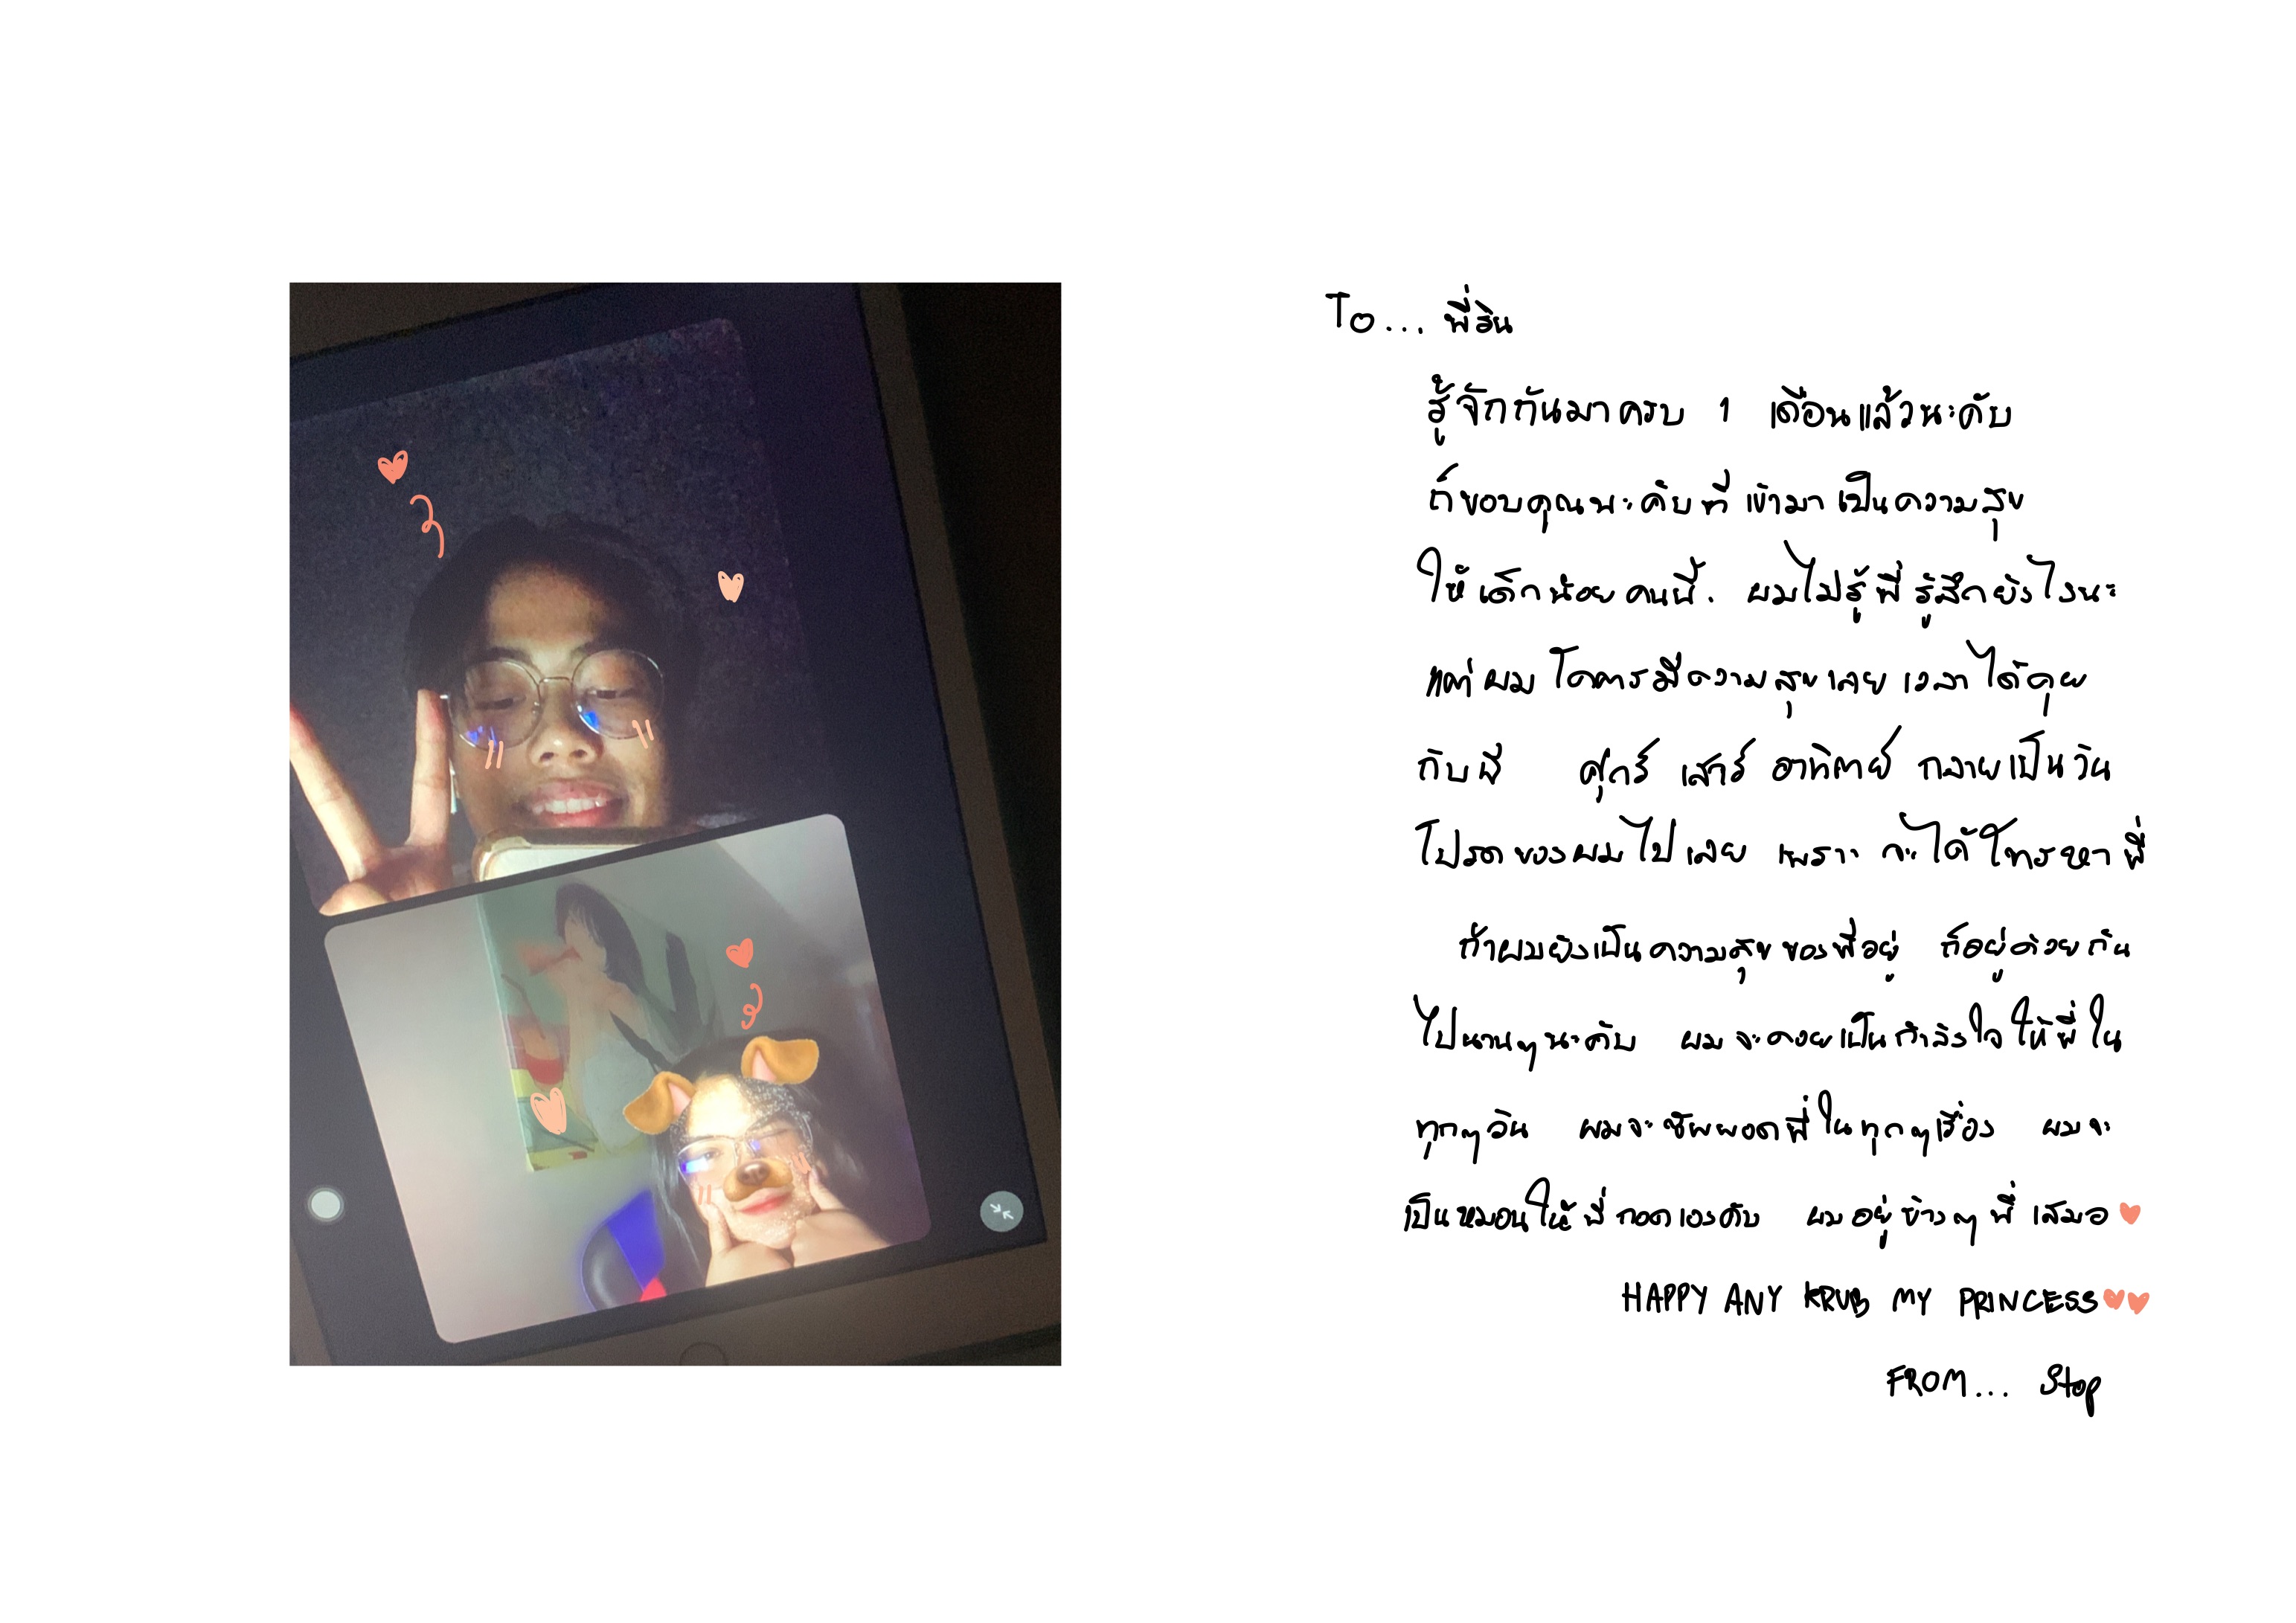 To... พี่ริน
รู้จักกันมาครบ 1 เดือนแล้วนะคับ
ก็ขอบคุณนะคับที่เข้ามาเป็นความสุข
ให้เด็กน้อยคนนี้. ผมไม่รู้พี่รู้สึกยังไงนะ
แต่ผมโคตรมีความสุขเลย เวลาได้คุย
กับพี่ ศุกร์ เสาร์ อาทิตย์ กลายเป็นวัน
โปรดของผมไปเลย เพราะ จะได้โทรหาพี่
ถ้าผมยังเป็นความสุขของพี่อยู่ ก็อยู่ด้วยกัน
ไปนานๆนะคับ ผมจะคอยเป็นกำลังใจให้พี่ใน
ทุกๆวัน ผมจะซัพพอตพี่ในทุกๆเรื่อง ผมจะ
เป็นหมอนให้พี่กอดเองคับ ผมอยู่ข้างๆพี่เสมอ
HAPPY ANY KRUB MY PRINCESS
FROM... Stop